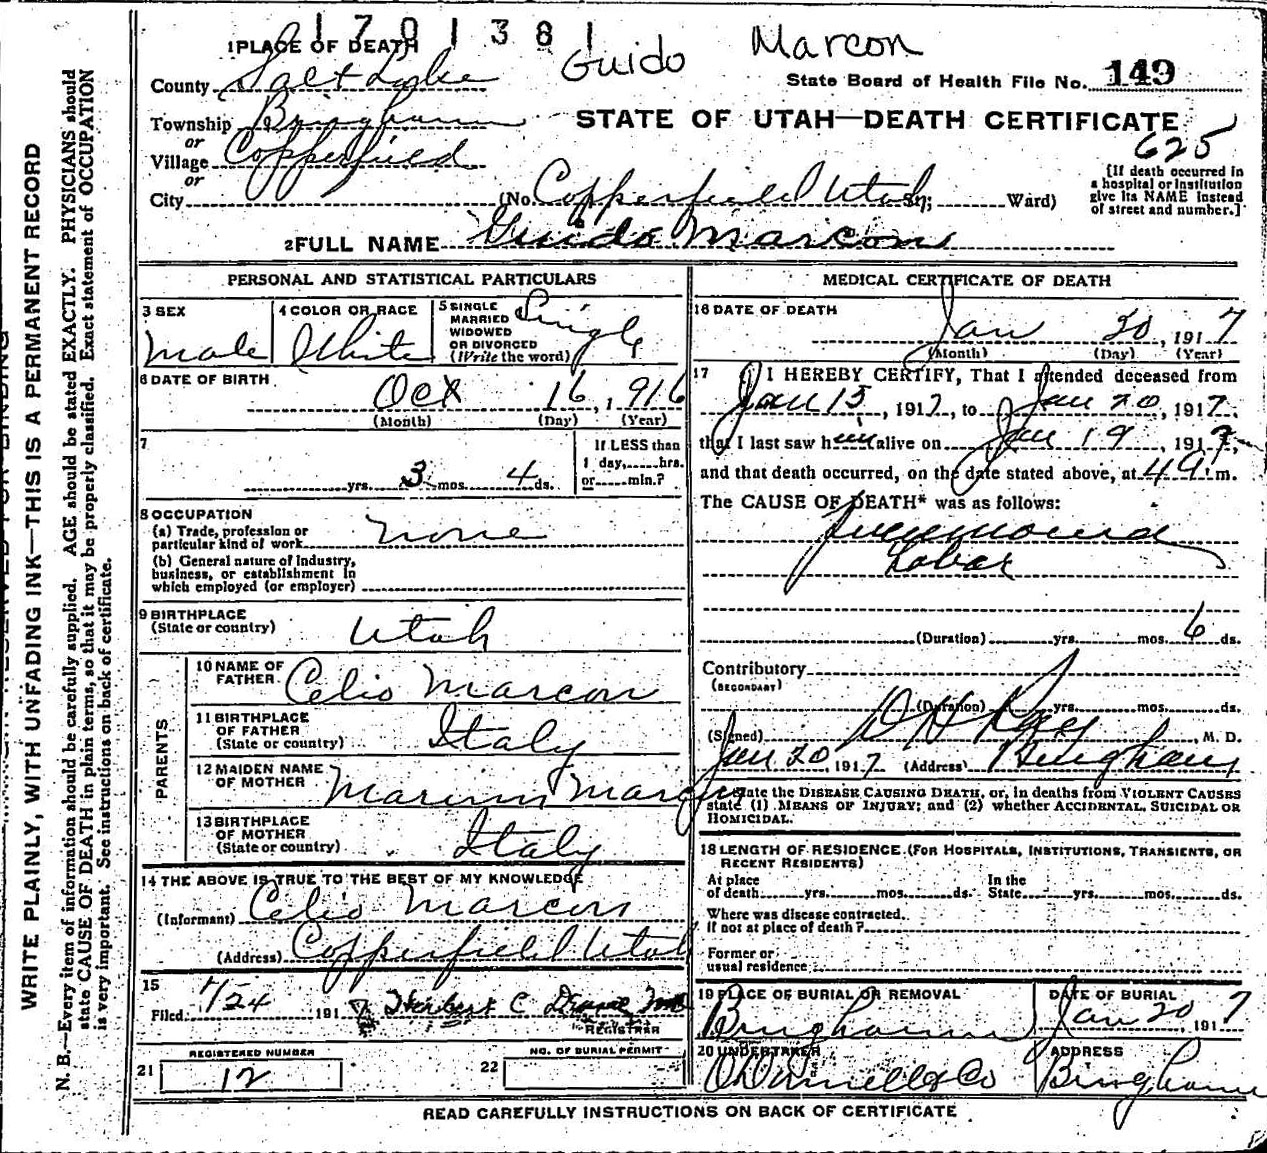 1701381
1 PLACE OF DEATH
Guido Marcon
County Salt Lake
State Board of Health File No. 149
Township Bingham
or
STATE OF UTAH—DEATH CERTIFICATE
625
Village Copperfield
or
City
(No. Copperfield Utah St; Ward)
[If death occurred in
a hospital or institution
give its NAME instead
of street and number.]
2 FULL NAME Guido Marcon
PERSONAL AND STATISTICAL PARTICULARS
3 SEX
Male
4 COLOR OR RACE
White
5 SINGLE
MARRIED
WIDOWED
OR DIVORCED
(Write the word)
Single
6 DATE OF BIRTH
Oct 16, 1916
(Month) (Day) (Year)
7
yrs. 3 mos. 4 ds.
If LESS than
1 day, hrs.
or min.?
8 OCCUPATION
(a) Trade, profession or
particular kind of work none
(b) General nature of industry,
business, or establishment in
which employed (or employer)
9 BIRTHPLACE
(State or country) Utah
PARENTS
10 NAME OF
FATHER Celio Marcon
11 BIRTHPLACE
OF FATHER
(State or country) Italy
12 MAIDEN NAME
OF MOTHER
13 BIRTHPLACE
OF MOTHER
(State or country) Italy
14 THE ABOVE IS TRUE TO THE BEST OF MY KNOWLEDGE
(Informant) Celio Marcon
(Address) Copperfield Utah
15
Filed 1/24 191
Herbert C
REGISTRAR
REGISTERED NUMBER
21 12
NO. OF BURIAL PERMIT
22
MEDICAL CERTIFICATE OF DEATH
16 DATE OF DEATH
Jan 20, 1917
(Month) (Day) (Year)
17 I HEREBY CERTIFY, That I attended deceased from
Jan 15, 1917, to Jan 20, 1917,
that I last saw him alive on Jan 19, 1917,
and that death occurred, on the date stated above, at m.
The CAUSE OF DEATH* was as follows:
Pneumonia
Lobar
(Duration) yrs. mos. 6 ds.
Contributory
(SECONDARY)
(Duration) yrs. mos. ds.
(Signed) , M. D.
Jan 20, 1917 (Address) Bingham
State the DISEASE CAUSING DEATH, or, in deaths from VIOLENT CAUSES
state (1) MEANS OF INJURY; and (2) whether ACCIDENTAL, SUICIDAL OR
HOMICIDAL.
18 LENGTH OF RESIDENCE (FOR HOSPITALS, INSTITUTIONS, TRANSIENTS, OR
RECENT RESIDENTS)
At place
of death yrs. mos. ds.
In the
State yrs. mos. ds.
Where was disease contracted.
If not at place of death?
Former or
usual residence
19 PLACE OF BURIAL OR REMOVAL
Bingham
DATE OF BURIAL
Jan 20, 1917
20 UNDERTAKER
O'Donnell & Co
ADDRESS
Bingham
READ CAREFULLY INSTRUCTIONS ON BACK OF CERTIFICATE
WRITE PLAINLY, WITH UNFADING INK—THIS IS A PERMANENT RECORD
N. B.—Every item of information should be carefully supplied. AGE should be stated EXACTLY. PHYSICIANS should
state CAUSE OF DEATH in plain terms, so that it may be properly classified. Exact statement of OCCUPATION
is very important. See instructions on back of certificate.